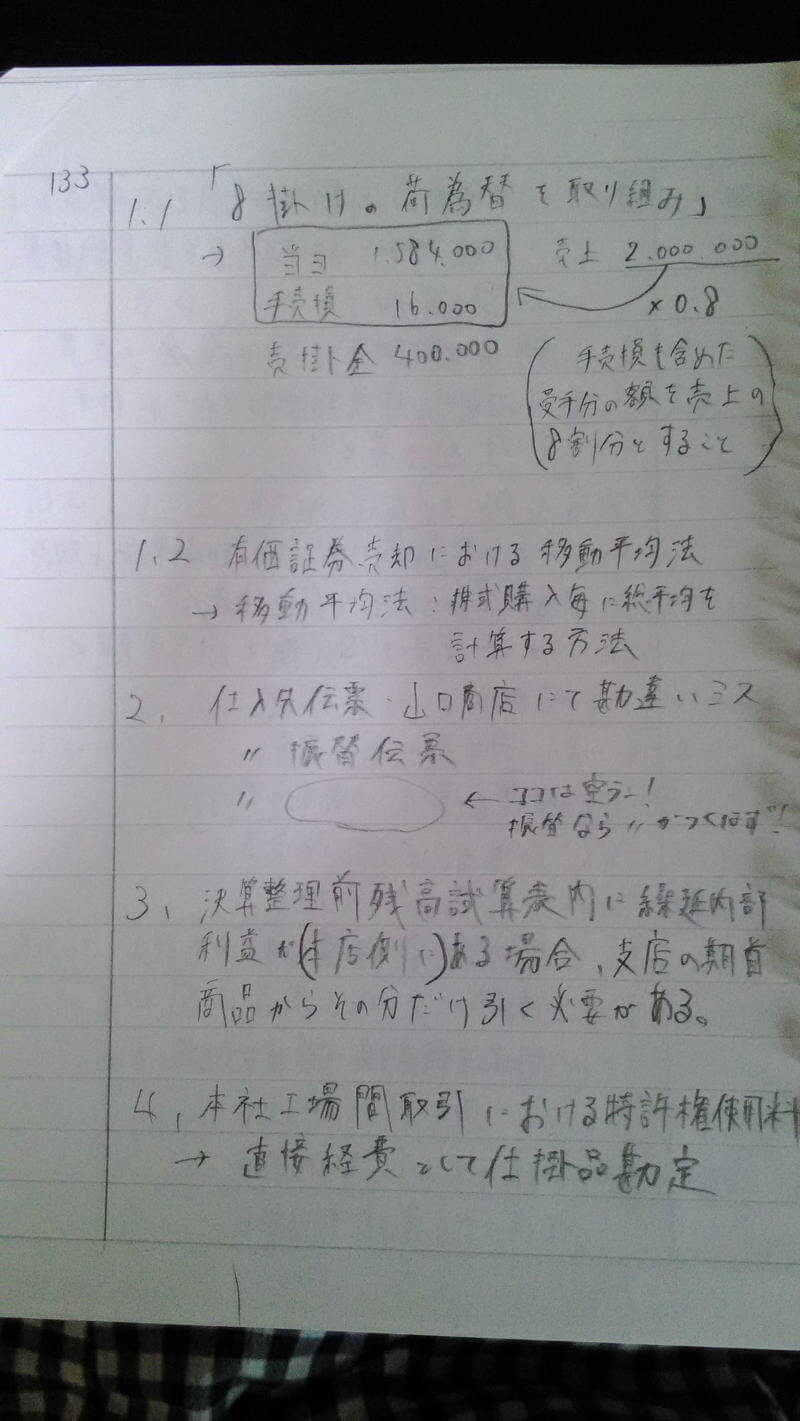 133
1.1 「8掛けの荷為替を取り組み」
→ 当ヨ 1.584.000 売上 2.000.000
手売損 16.000 × 0.8
売掛金 400.000
(手売損も含めた
受手分の額を売上の
8割分とすること)
1.2 有価証券売却における移動平均法
→ 移動平均法:株式購入毎に総平均を
計算する方法
2, 仕入先伝票・山口商店にて勘違いミス
〃 振替伝票
〃 ← ココは空ラン!
振替なら〃がつくはず!
3、決算整理前残高試算表内に繰延内部
利益が(本店側に)ある場合、支店の期首
商品からその分だけ引く必要がある。
4、本社工場間取引における特許権使用料
→ 直接経費として仕掛品勘定